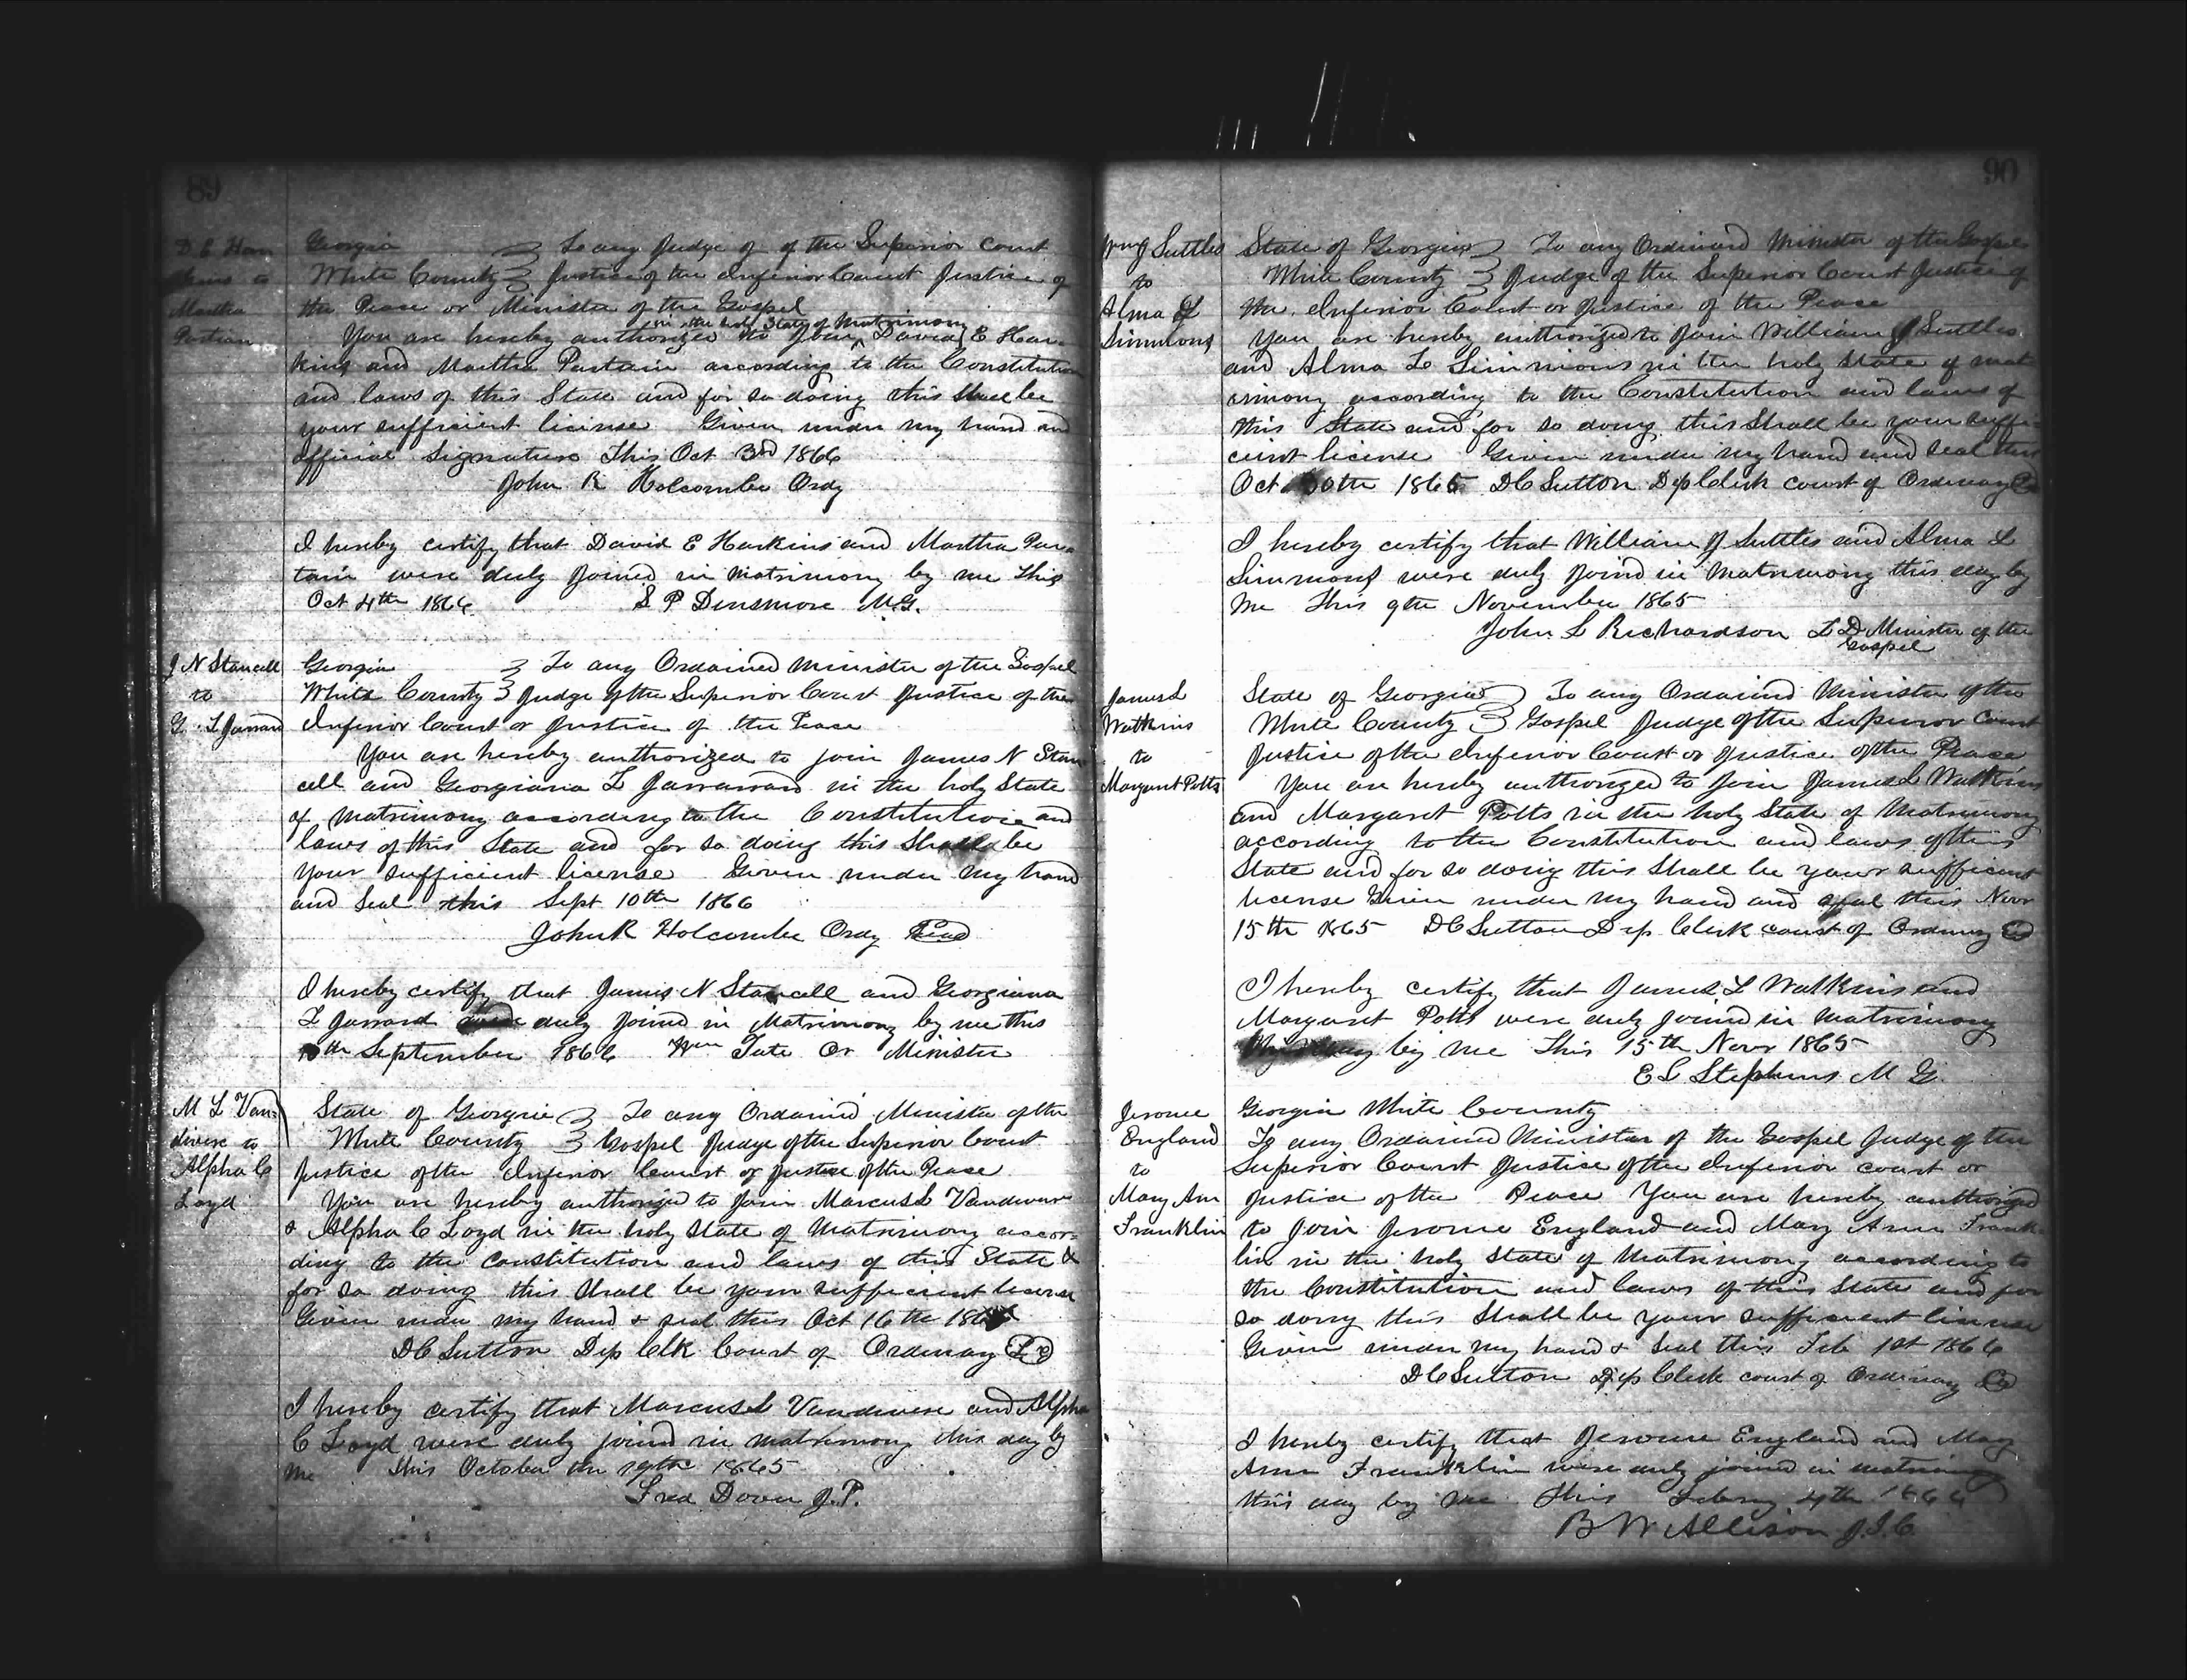 89
D E Har
kins to
Martha
Partain
Georgia } To any Judge of of the Superior Court
White County } Justice of the Inferior Court Justice of
the Peace or Minister of the Gospel
in the holy State of Matrimony
You are hereby authorized to join ^ David E Har
kins and Martha Partain according to the Constitution
and laws of this State and for so doing this shall be
your sufficient license Given under my hand and
official Signature This Oct 3rd 1866
John R Holcombe Ordy
I hereby certify that David E Harkins and Martha Par
tain were duly joined in matrimony by me this
Oct 4th 1866 S P Densmore M.G.
J N Stancell
to
G. L Jarrard
Georgia } To any Ordained Minister of the Gospel
White County } Judge of the Superior Court Justice of the
Inferior Court or Justice of the Peace
You are hereby authorized to join James N Stan
cell and Georgiana L Jarrarard in the holy State
of matrimony according to the Constitution and
laws of this State and for so doing this Shall be
your sufficient license Given under my hand
and Seal this Sept 10th 1866
John R Holcombe Ordy Seal
I hereby certify that James N Stancell and Georgiana
L Jarrard were duly joined in Matrimony by me this
10th September 1866 Wm Tate Or Minister
M L Van-
divere to
Alpha C
Loyd
State of Georgia } To any Ordained Minister of the
White County } Gospel Judge of the Superior Court
Justice of the Inferior Court or Justice of the Peace
You are hereby authorized to join Marcus L Vandivere
& Alpha C Loyd in the holy State of Matrimony accor-
ding to the Constitution and laws of this State &
for so doing this Shall be your sufficient license
Given under my hand & seal this Oct 16th
D C Sutton Dep Clk Court of Ordinary L S
I hereby certify that Marcus L Vandivere and Alpha
C Loyd were duly joined in matrimony this day by
me this October the 19th 1865
Fred Dover J.P.
90
Wm J Suttles
to
Alma L
Simmons
State of Georgia } To any Ordained Minister of the Gospel
White County } Judge of the Superior Court Justice of
the Inferior Court or Justice of the Peace
You are hereby authorized to join William J Suttles
and Alma L Simmons in the holy State of mat
rimony according to the Constitution and laws of
this State and for so doing this Shall be your suffi
cient license Given under my hand and seal this
Oct 30th 1865 D C Sutton Dep Clerk court of Ordinary
I hereby certify that William J Suttles and Alma L
Simmons were duly joind in Matrimony this day by
me This 9th November 1865
John L Richardson L D Minister of the
Gospel
James L
Watkins
to
Margaret Potts
State of Georgia } To any Ordained Minister of the
White County } Gospel Judge of the Superior Court
Justice of the Inferior Court or Justice of the Peace
You are hereby authorized to join James L Watkins
and Margaret Potts in the holy State of Matrimony
according to the Constitution and laws of this
State and for so doing this Shall be your sufficient
license Given under my hand and seal this Novr
15th 1865 D C Sutton Dep Clerk court of Ordinary
I hereby certify that James L Watkins and
Margaret Potts were duly joined in matrimony
by me This 15th Novr 1865
E L Stephens M G.
Jerome
England
to
Mary Ann
Franklin
Georgia White County
To any Ordained Minister of the Gospel Judge of the
Superior Court Justice of the Inferior court or
Justice of the Peace You are hereby authorized
to join Jerome England and Mary Ann Frank
lin in the holy State of Matrimony according to
the Constitution and laws of this State and for
so doing this Shall be your sufficient license
Given under my hand & Seal this Feb 1st 1866
D C Sutton Dep Clerk court of Ordinary
I hereby certify that Jerome England and Mary
Ann Franklin were duly joined in matrimony
this day by me this 4th 1866
B W Allison J.I.C.